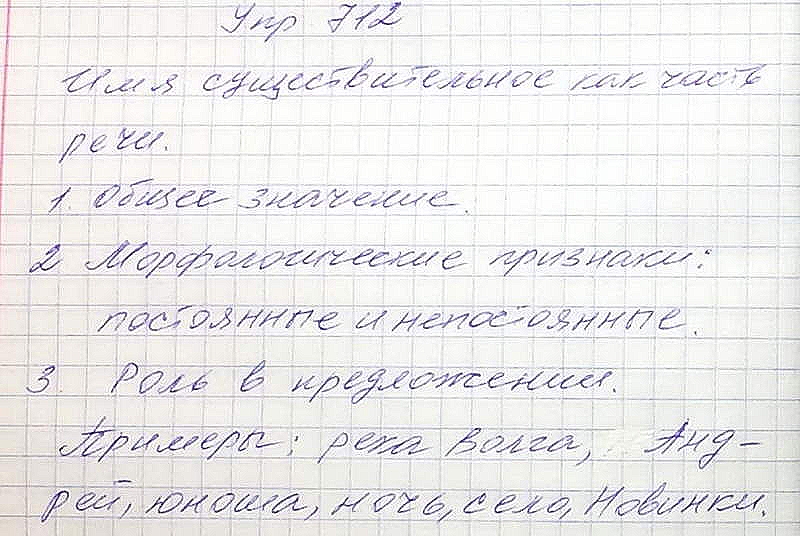 Упр 712
Имя существительное как часть
речи.
1. Общее значение.
2 Морфологические признаки:
постоянные и непостоянные.
3. Роль в предложении.
Примеры: река Волга, Анд-
рей, юноша, ночь, село, Новинки.